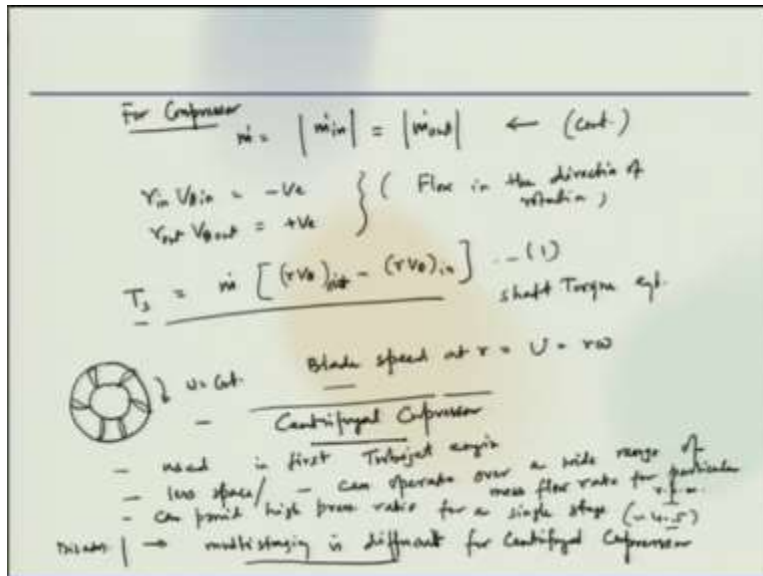 For Compressor
ṁ = |ṁin| = |ṁout| ← (Cont.)
rin Vθin = -Ve } ( Flow in the direction of
rout Vθout = +Ve rotation )
Ts = ṁ [(rVθ)out - (rVθ)in] --(1)
shaft Torque eqt.
Blade speed at r = U = rω
ω = Cont.
Centrifugal Compressor
- used in first Turbojet engin
- less space/ - can operate over a wide range of
mass flow rate for particular
r.p.m.
- can provid high press ratio for a single stage (~4.5)
Disadv | → multistaging is difficult for Centrifugal Compressor